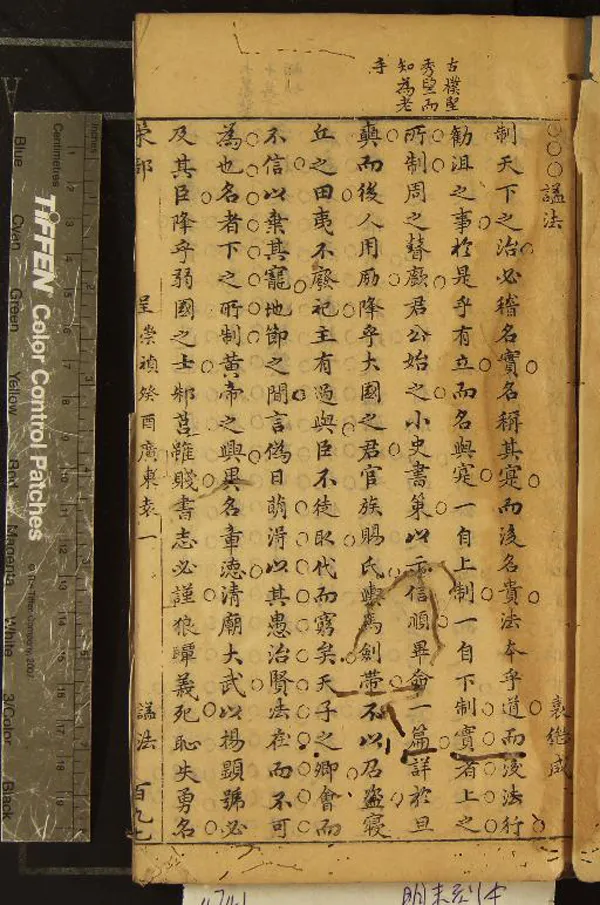 古樸堅
秀望而
知為老
手
諡法
袁繼咸
制天下之治必稽名實名稱其寔而後名貴法本乎道而後法行
勸沮之事於是乎有立而名與寔一自上制一自下制實者上之
所制周之瞽矇君公始之小史書策以示信順畢命一篇詳於旦
奭而後人用勵降乎大國之君官族賜氏輿馬劍帶不以君盜寢
丘之田夷不廢祀主有過與臣不徒取代而窮矣天子之卿會而
不信以棄其寵地節之間言偽日萌淂以其患治賢法在而不可
為也名者下之所制黄帝之興異名章德清廟大武以揚顯號必
及其臣降乎弱國之士邾莒雖賤書志必謹狼瞫義死恥失勇名
呈崇禎癸酉廣東袁一
諡法
百九七
Inches
Centimetres
TIFFEN Color Control Patches
© The Tiffen Company, 2007
Blue
Cyan
Green
Yellow
Red
Magenta
White
3/Color
Black